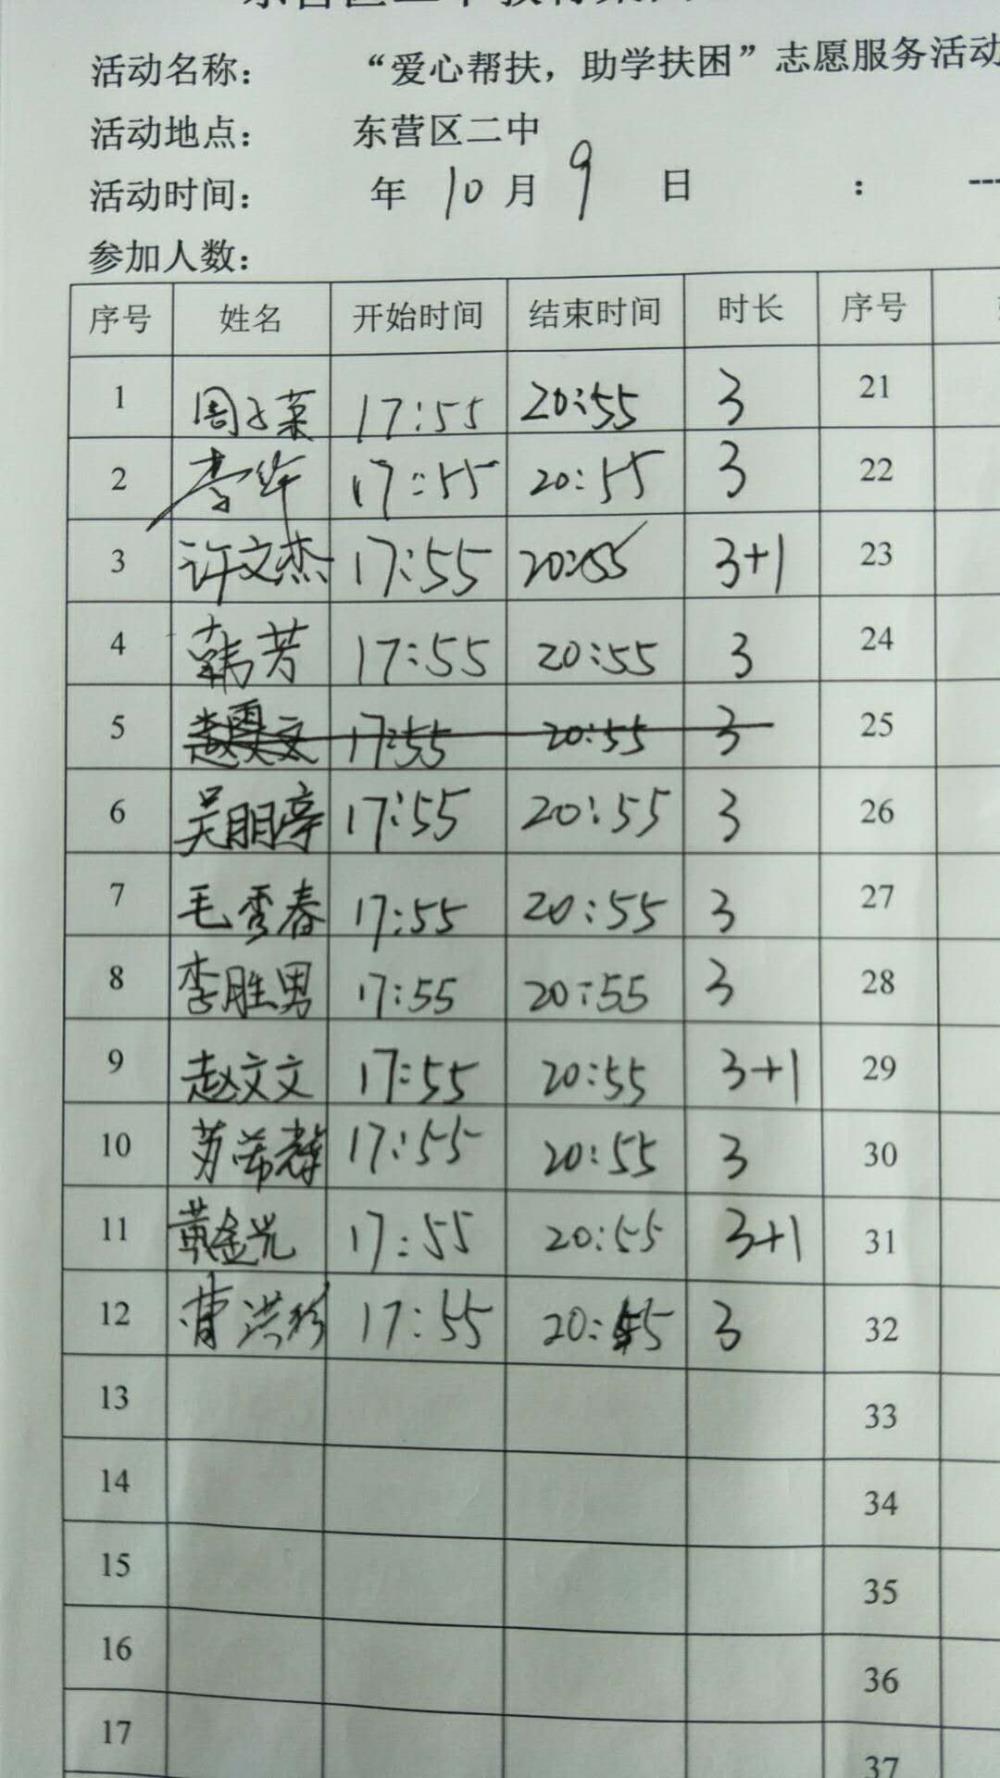 活动名称： “爱心帮扶，助学扶困”志愿服务活动
活动地点： 东营区二中
活动时间： 年 10 月 9 日 : ---
参加人数：
序号 姓名 开始时间 结束时间 时长 序号
1 周子菜 17:55 20:55 3 21
2 李华 17:55 20:55 3 22
3 许文杰 17:55 20:55 3+1 23
4 韩芳 17:55 20:55 3 24
5 17:55 20:55 3 25
6 吴朋亭 17:55 20:55 3 26
7 毛秀春 17:55 20:55 3 27
8 李胜男 17:55 20:55 3 28
9 赵文文 17:55 20:55 3+1 29
10 17:55 20:55 3 30
11 黄金光 17:55 20:55 3+1 31
12 曹洪珍 17:55 20:55 3 32
13 33
14 34
15 35
16 36
17 37